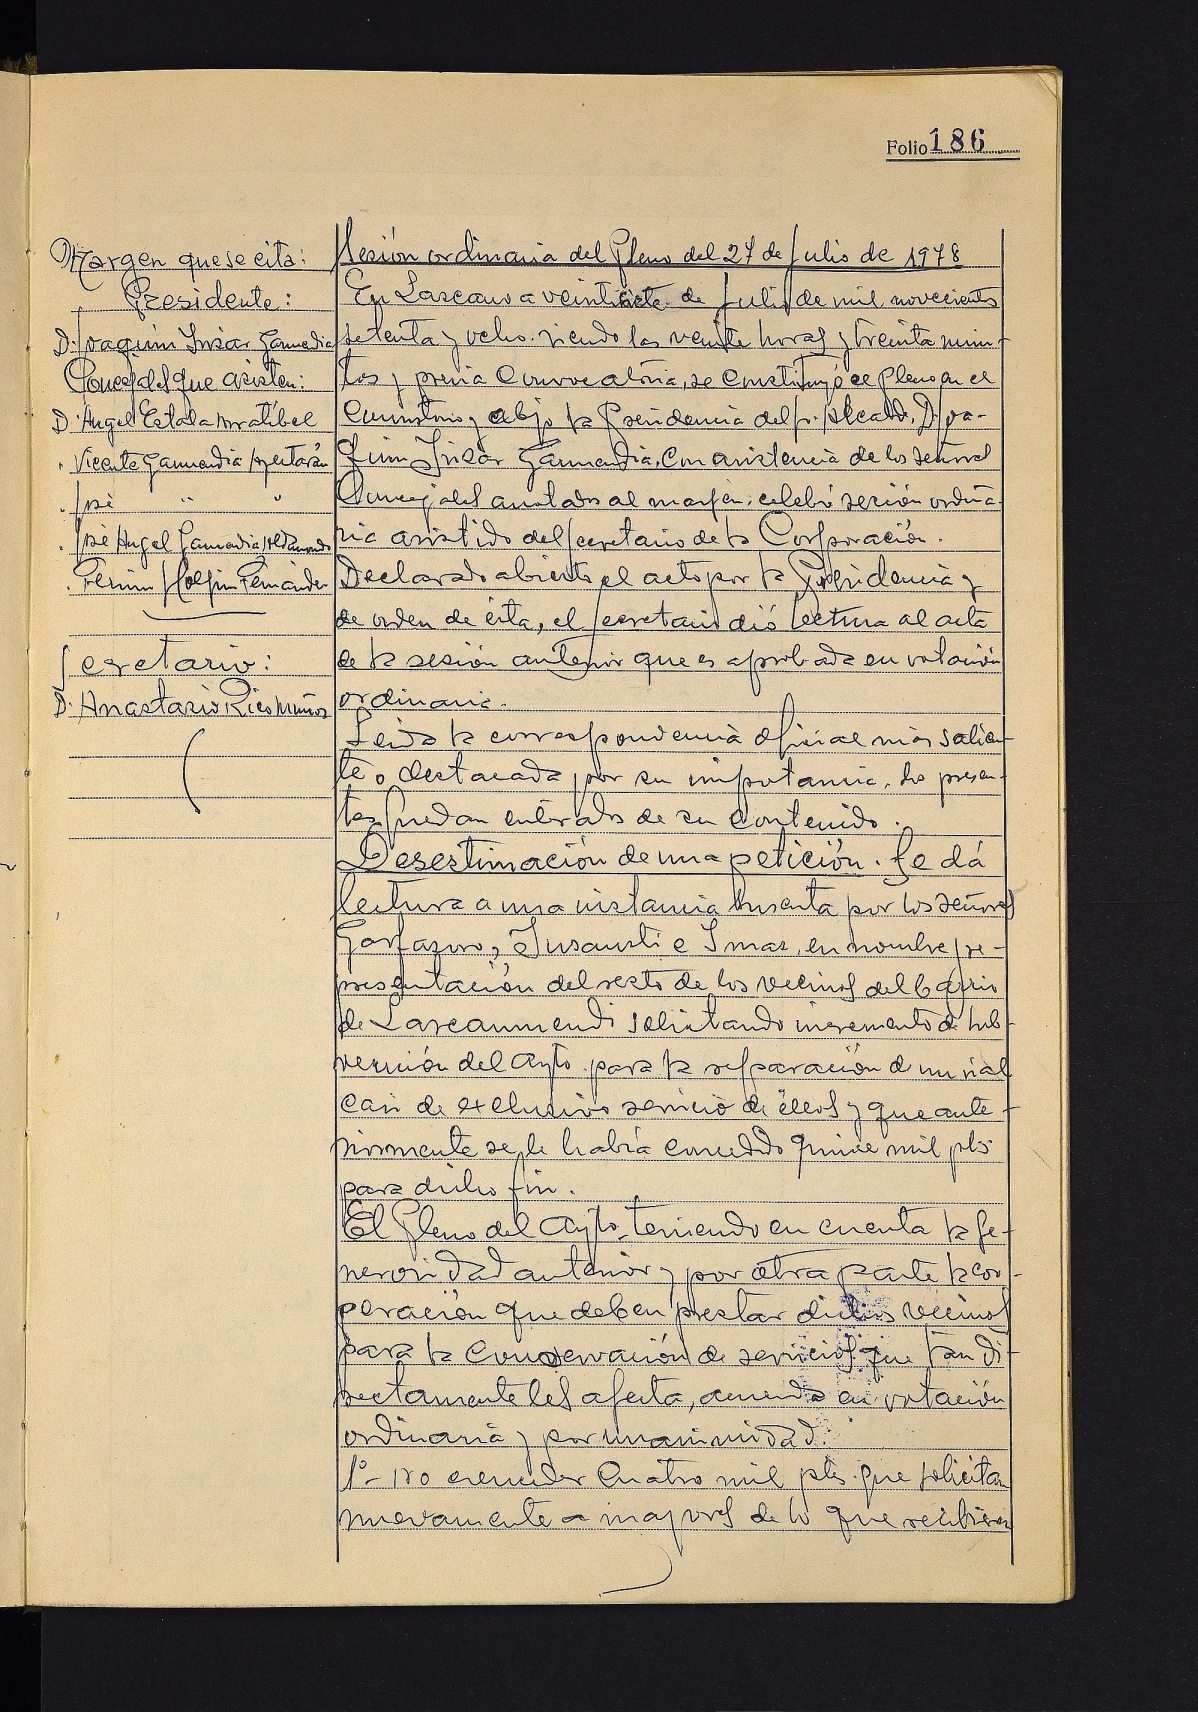 Folio 186
Margen que se cita:
Presidente:
D. Joaquín Insar Garmendia
Concejales que asisten:
D. Angel Estala Moratibel
. Vicente Garmendia
. José " "
. José Angel Garmendia
. Fermin Holfin Fernández
Secretario:
D. Anastasio Rico Muñoz
Sesión ordinaria del Pleno del 27 de Julio de 1978
En Lazcano a veintisiete de Julio de mil novecientos
setenta y ocho. siendo las veinte horas y treinta minu-
tos y previa Convocatoria, se constituyó el Pleno en el
Consistorio y abjo la Presidencia del Sr. Alcalde, D. Joa-
quin Insar Garmendia, con asistencia de los señores
Concejales anotados al margen, celebró sesión ordina-
ria asistido del Secretario de la Corporación.
Declarado abierto el acto por la Presidencia y
de orden de ésta, el Secretario dió lectura al acta
de la sesión anterior que es aprobada en votación
ordinaria.
Leida la correspondencia oficial más salien-
te o destacada por su importancia, los presen-
tes quedan enterados de su contenido.
Desestimación de una petición. Se dá
lectura a una instancia suscrita por los señores
Garfazoro, Insausti e Imaz, en nombre y re-
presentación del resto de los vecinos del barrio
de Lazcanumendi solicitando incremento de sub-
vención del Ayto. para la reparación de un vial
casi de exclusivo servicio de éllos y que ante-
riormente se le había concedido quince mil pts
para dicho fin.
El Pleno del Ayto, teniendo en cuenta la ge-
nerosidad anterior y por otra parte la coo-
peración que deben prestar dichos vecinos
para la conservación de servicios que tan di-
rectamente les afecta, acuerda en votación
ordinaria y por unanimidad:
1º- no conceder Cuatro mil pts. que solicitan
nuevamente a mayores de lo que recibieron